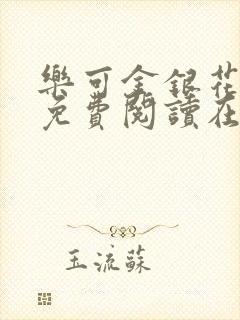 樂可金銀花
免費閱讀在
玉流蘇